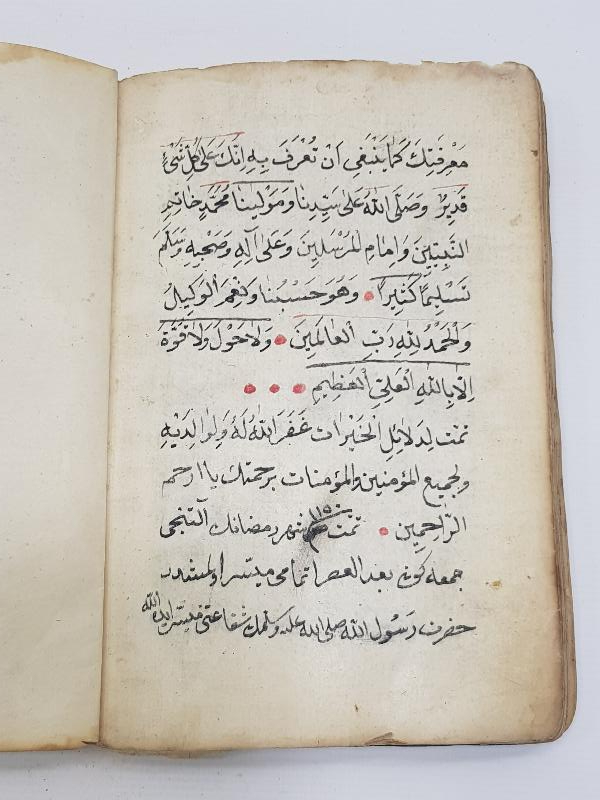 مَعْرِفَتِكَ كَمَا يَنْبَغِي اَنْ تُعْرَفَ بِهِ اِنَّكَ عَلٰى كُلِّ شَيْءٍ
قَدِيْرٌ وَصَلَّى اللهُ عَلٰى سَيِّدِنَا وَمَوْلٰينَا مُحَمَّدٍ خَاتِمِ
النَّبِيِّينَ وَاِمَامِ الْمُرْسَلِينَ وَعَلٰى اٰلِهِ وَصَحْبِهِ وَسَلَّمَ
تَسْلِيمًا كَثِيرًا وَهُوَ حَسْبُنَا وَنِعْمَ الْوَكِيلُ
وَالْحَمْدُ لِلّٰهِ رَبِّ الْعَالَمِينَ وَلَا حَوْلَ وَلَا قُوَّةَ
اِلَّا بِاللهِ الْعَلِيِّ الْعَظِيمِ
تمّت لِدَلَائِلِ الْخَيْرَات غَفَرَ اللهُ لَهُ وَلِوَالِدَيْهِ
ولجميع المؤمنين والمؤمنات برحمتك يا ارحم
الرَّاحِمِين تمّت ١١٥٠ شهر رمضانك
جمعه كونى بعد العصر اتمامى ميسّر اولمشدر
حضرت رَسُول الله صلى الله عليه وسلمك شفاعتى ميسّر ايده الله